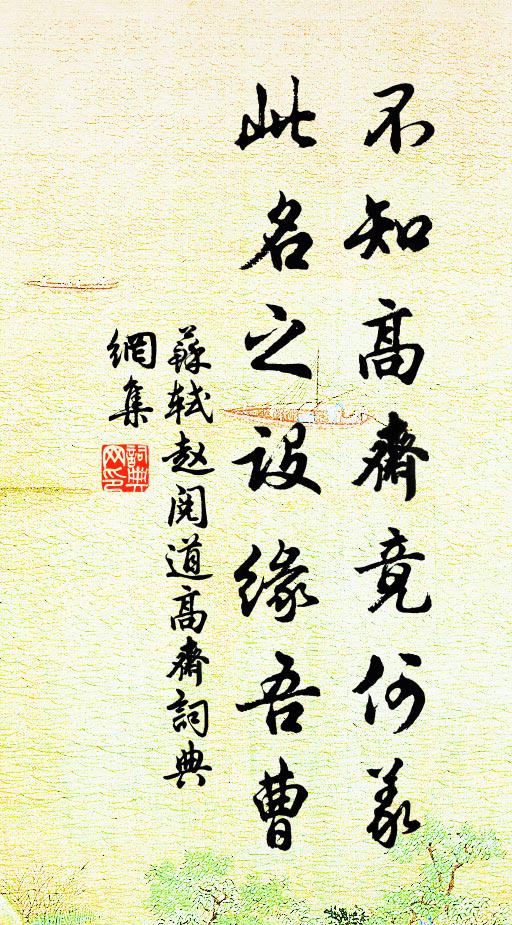 不知高齋竟何義
此名之設緣吾曹
蘇軾赵閱道高齋詞典
網集
詞典
网印